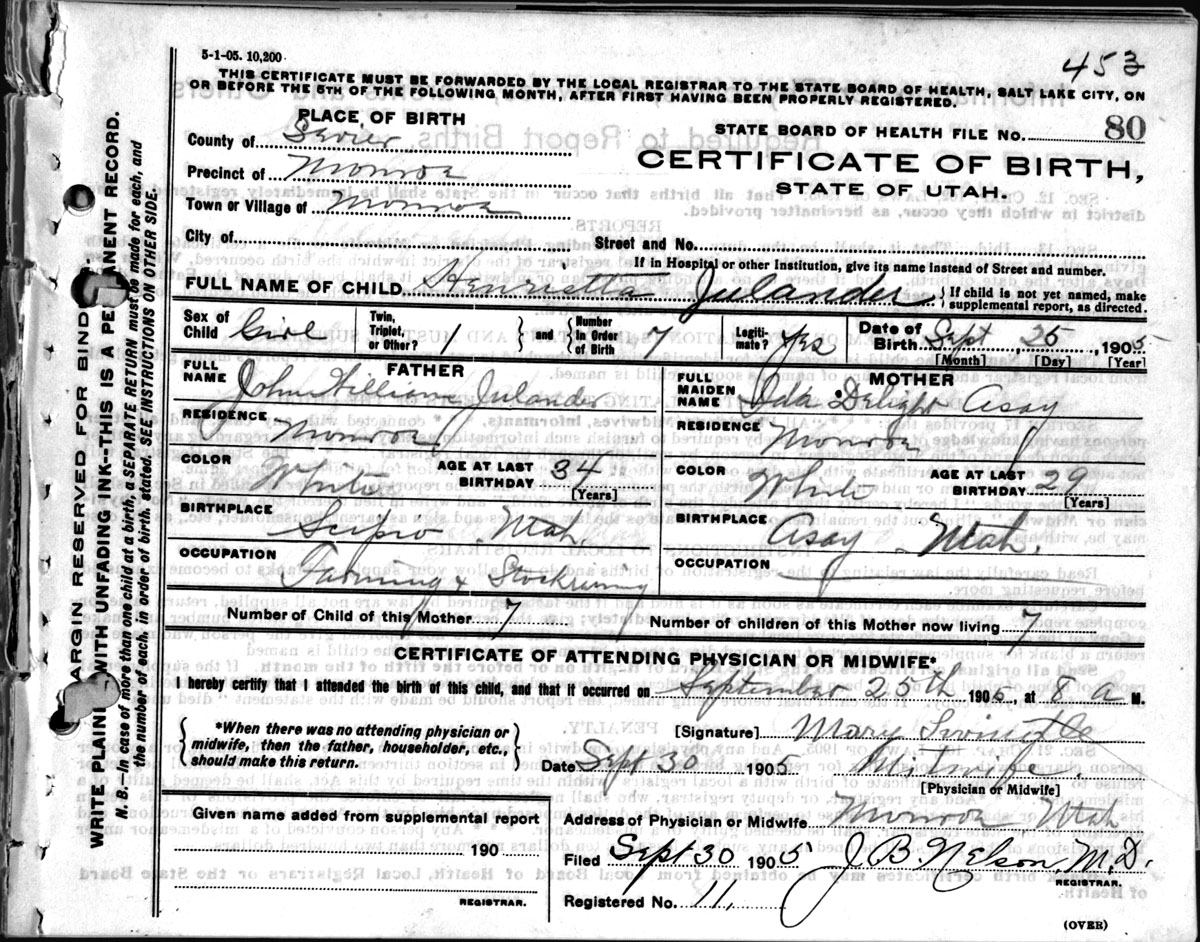 453
5-1-05. 10,200
THIS CERTIFICATE MUST BE FORWARDED BY THE LOCAL REGISTRAR TO THE STATE BOARD OF HEALTH, SALT LAKE CITY, ON
OR BEFORE THE 5TH OF THE FOLLOWING MONTH, AFTER FIRST HAVING BEEN PROPERLY REGISTERED.
PLACE OF BIRTH
STATE BOARD OF HEALTH FILE No. 80
County of Sevier
CERTIFICATE OF BIRTH,
Precinct of Monroe
STATE OF UTAH.
Town or Village of Monroe
City of Street and No.
If in Hospital or other Institution, give its name instead of Street and number.
FULL NAME OF CHILD Henrietta Julander { If child is not yet named, make
supplemental report, as directed.
Sex of Child Girl Twin, Triplet, or Other? 1 } and { Number In Order of Birth 7 Legiti- mate? Yes Date of Birth Sept 25, 1905
[Month] [Day] [Year]
FATHER
FULL NAME John William Julander
RESIDENCE Monroe
COLOR White AGE AT LAST BIRTHDAY 34
[Years]
BIRTHPLACE Scipio Utah.
OCCUPATION Farming &
MOTHER
FULL MAIDEN NAME Ida Delight Asay
RESIDENCE Monroe
COLOR White AGE AT LAST BIRTHDAY 29
[Years]
BIRTHPLACE Asay Utah.
OCCUPATION
Number of Child of this Mother 7 Number of children of this Mother now living 7
CERTIFICATE OF ATTENDING PHYSICIAN OR MIDWIFE*
I hereby certify that I attended the birth of this child, and that it occurred on September 25th 1905, at 8 a M.
*When there was no attending physician or
midwife, then the father, householder, etc.,
should make this return.
[Signature] Mary
Date Sept 30 1905 Midwife.
[Physician or Midwife]
Given name added from supplemental report
190
REGISTRAR.
Address of Physician or Midwife Monroe Utah
Filed Sept 30 1905 J. B. Nelson, M.D.
REGISTRAR.
Registered No. 11.
(OVER)
MARGIN RESERVED FOR BINDING.
WRITE PLAINLY WITH UNFADING INK--THIS IS A PERMANENT RECORD.
N. B.--In case of more than one child at a birth, a SEPARATE RETURN must be made for each, and
the number of each, in order of birth, stated. SEE INSTRUCTIONS ON OTHER SIDE.